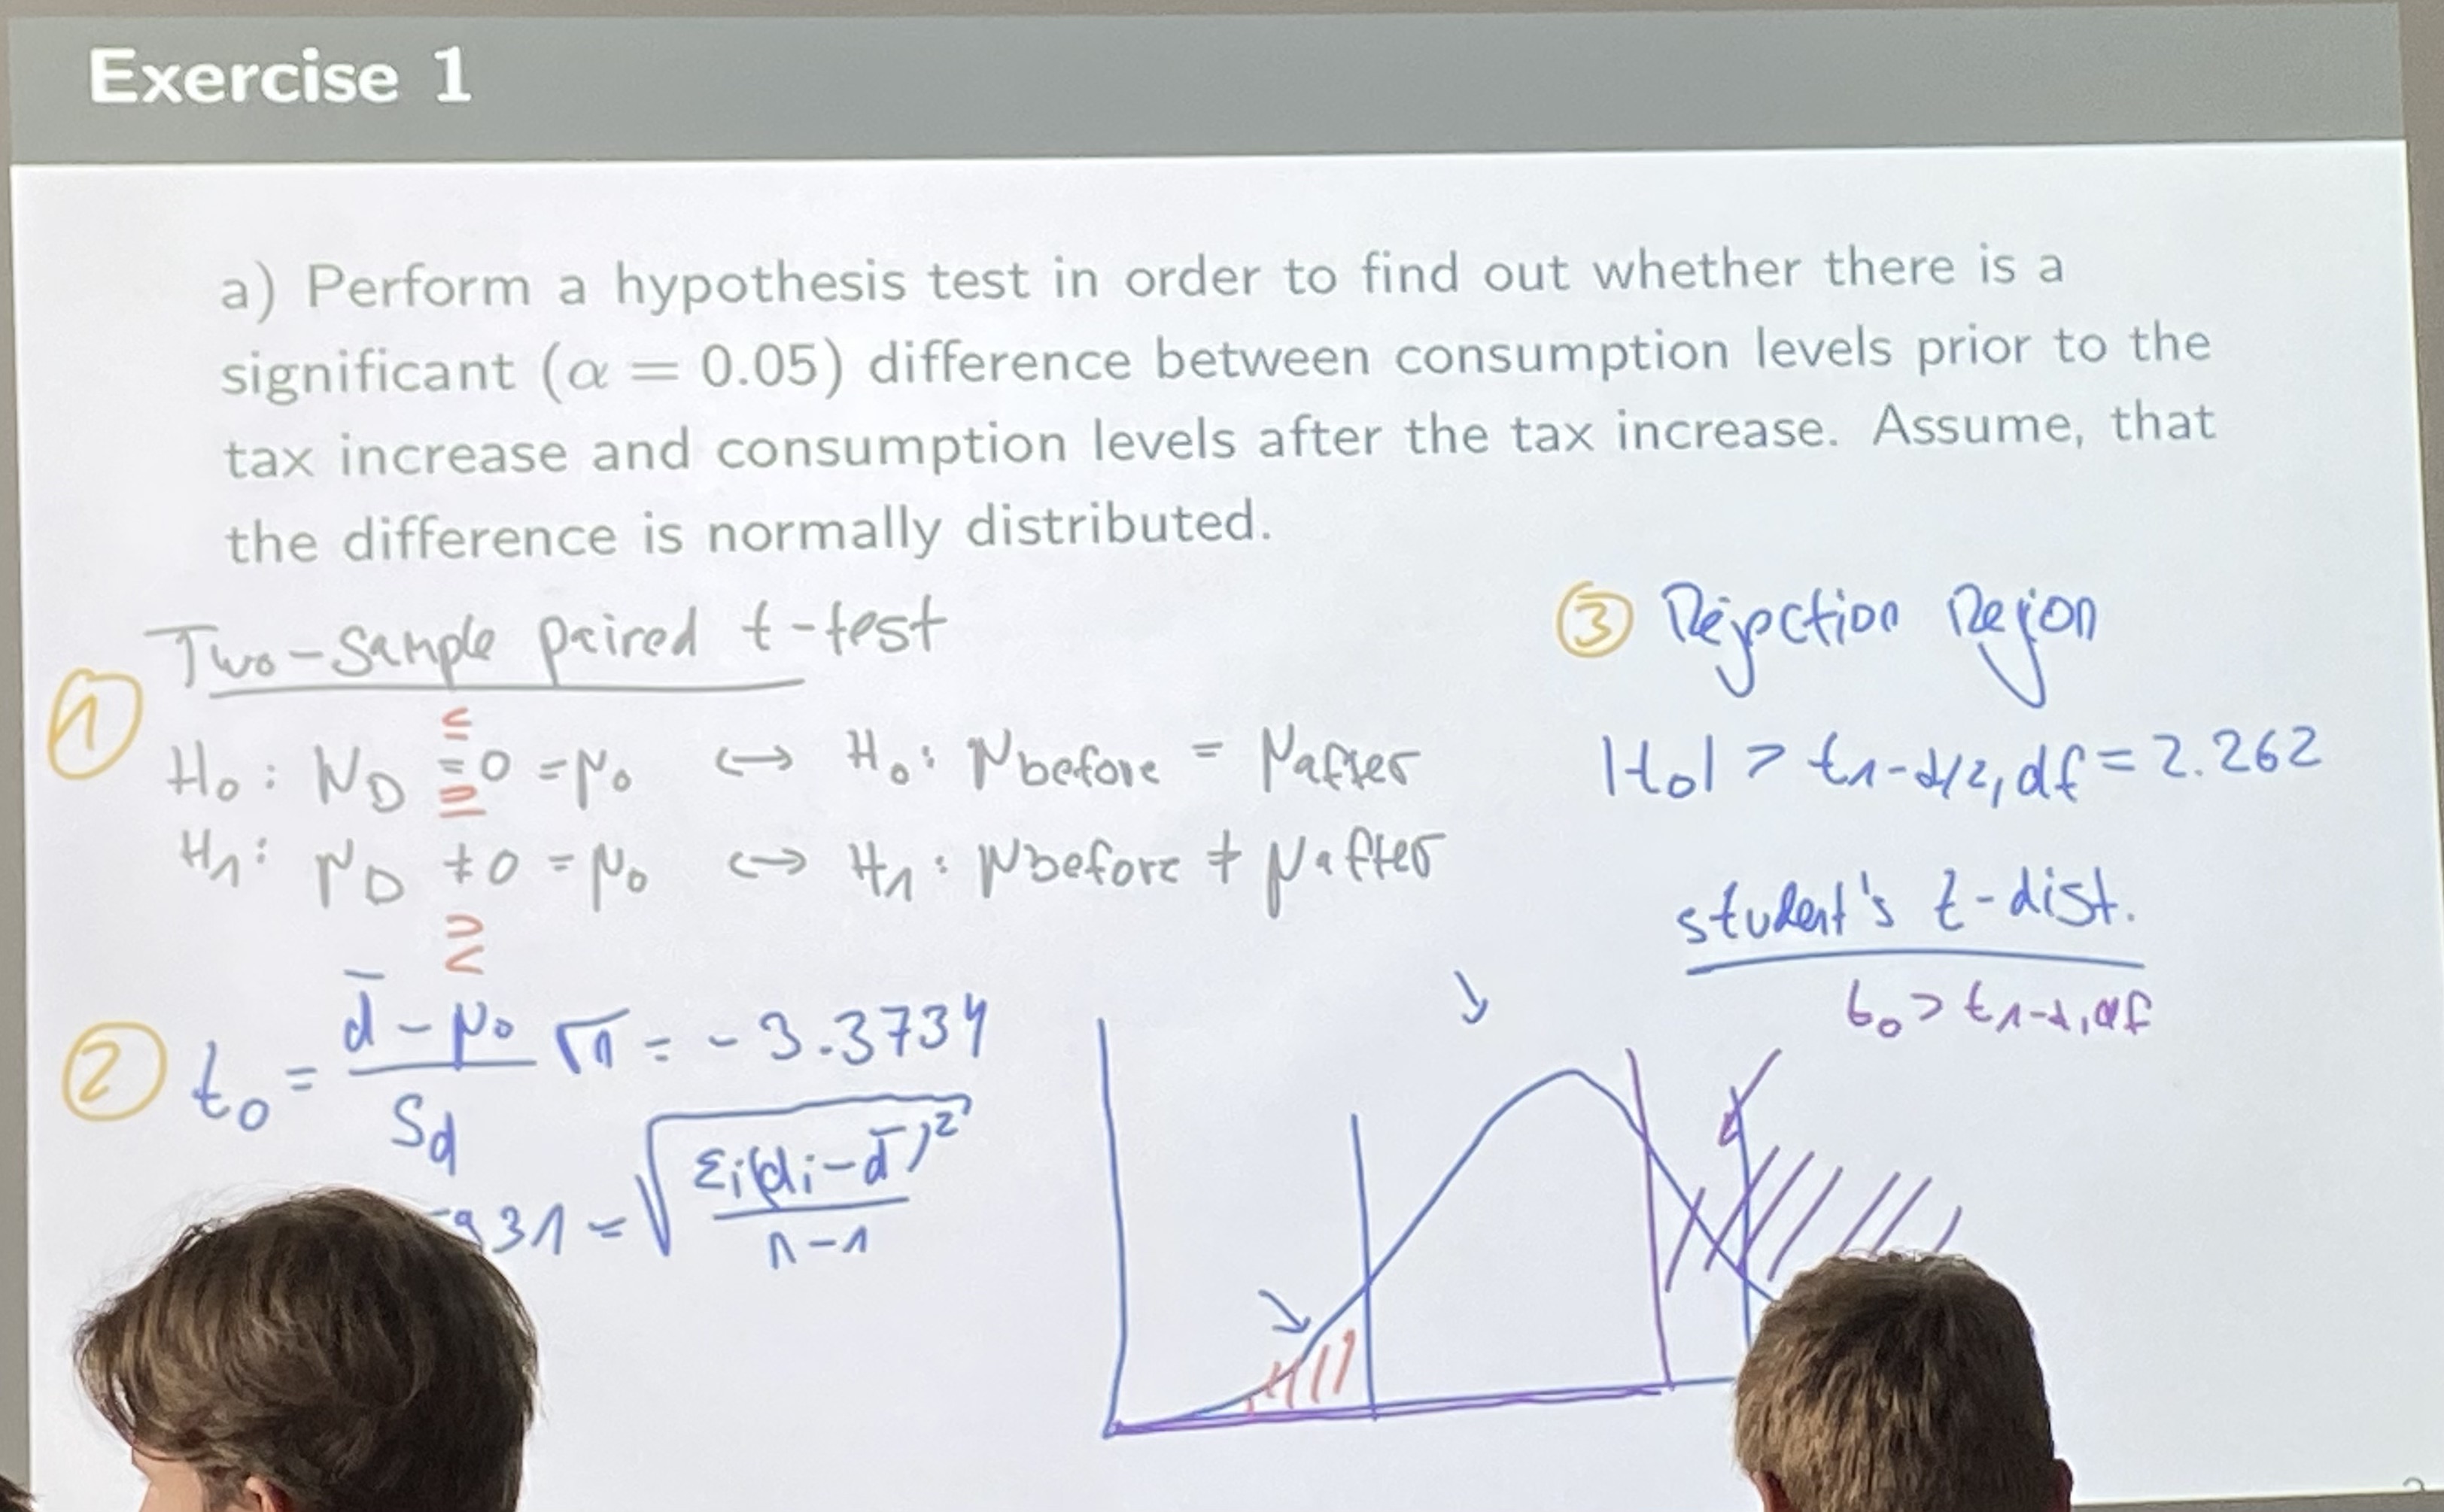 Exercise 1
a) Perform a hypothesis test in order to find out whether there is a
significant (α = 0.05) difference between consumption levels prior to the
tax increase and consumption levels after the tax increase. Assume, that
the difference is normally distributed.
Two-Sample paired t-test
①
≤
H₀: μD = 0 = μ₀ ↔ H₀: μbefore = μafter
≥
H₁: μD ≠ 0 = μ₀ ↔ H₁: μbefore ≠ μafter
>
<
② t₀ = (d̄ - μ₀)/Sd √n = -3.3734
931 = √(Σi(di - d̄)²/(n-1))
③ Rejection Rejon
|t₀| > t1-α/2, df = 2.262
student's t-dist.
t₀ > t1-α, df